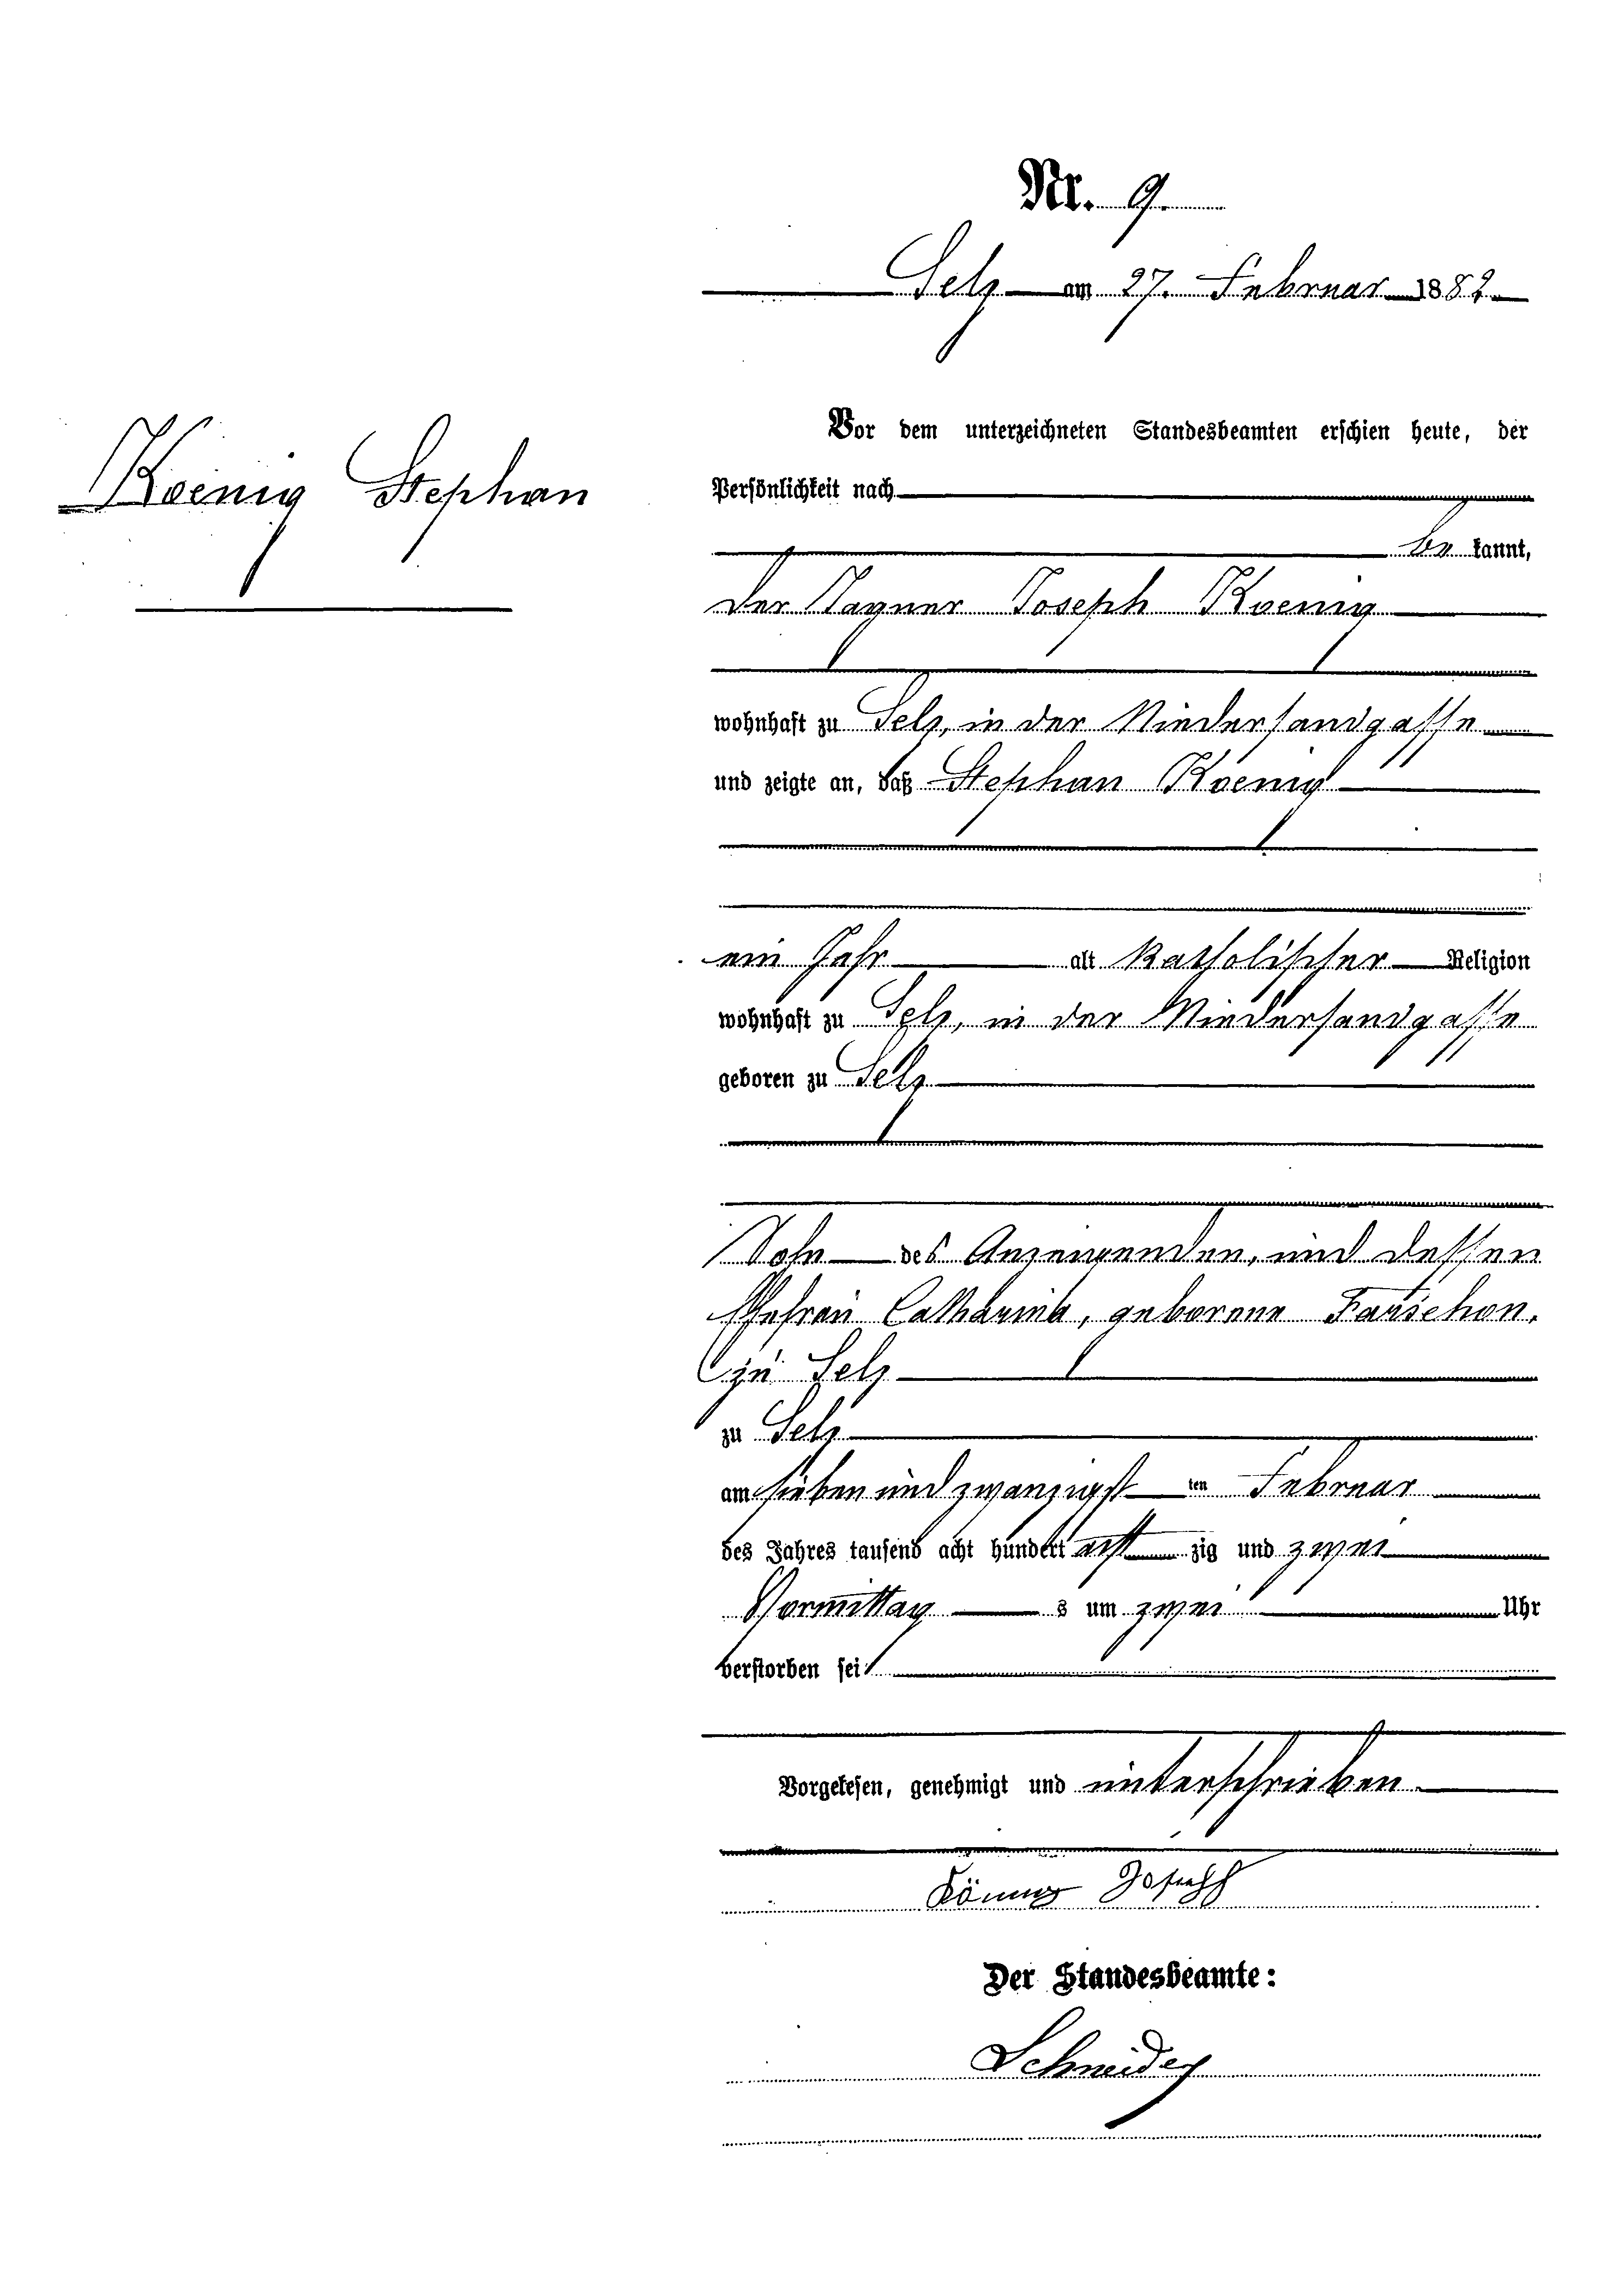 Nr. 9.
Selz am 27. Februar 1882
Koenig Stephan
Vor dem unterzeichneten Standesbeamten erschien heute, der
Persönlichkeit nach
be kannt,
der Tagner Joseph Koenig
wohnhaft zu Selz, in der Niedersandgasse
und zeigte an, daß Stephan Koenig
ein Jahr alt katholischer Religion
wohnhaft zu Selz, in der Niedersandgasse
geboren zu Selz
Sohn des Anzeigenden, und dessen
Ehefrau Catharina, geborene Fauschon,
zu Selz
zu Selz
am sieben und zwanzigst ten Februar
des Jahres tausend acht hundert acht zig und zwei
Vormittag s um zwei Uhr
verstorben sei
Vorgelesen, genehmigt und unterschrieben
König Joseph
Der Standesbeamte:
Schneider